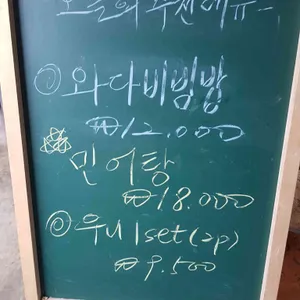 오늘의 추천메뉴
◎ 와다비빔밥
₩12.000
민어탕
₩18.000
◎ 우니 1set(2p)
₩9.500